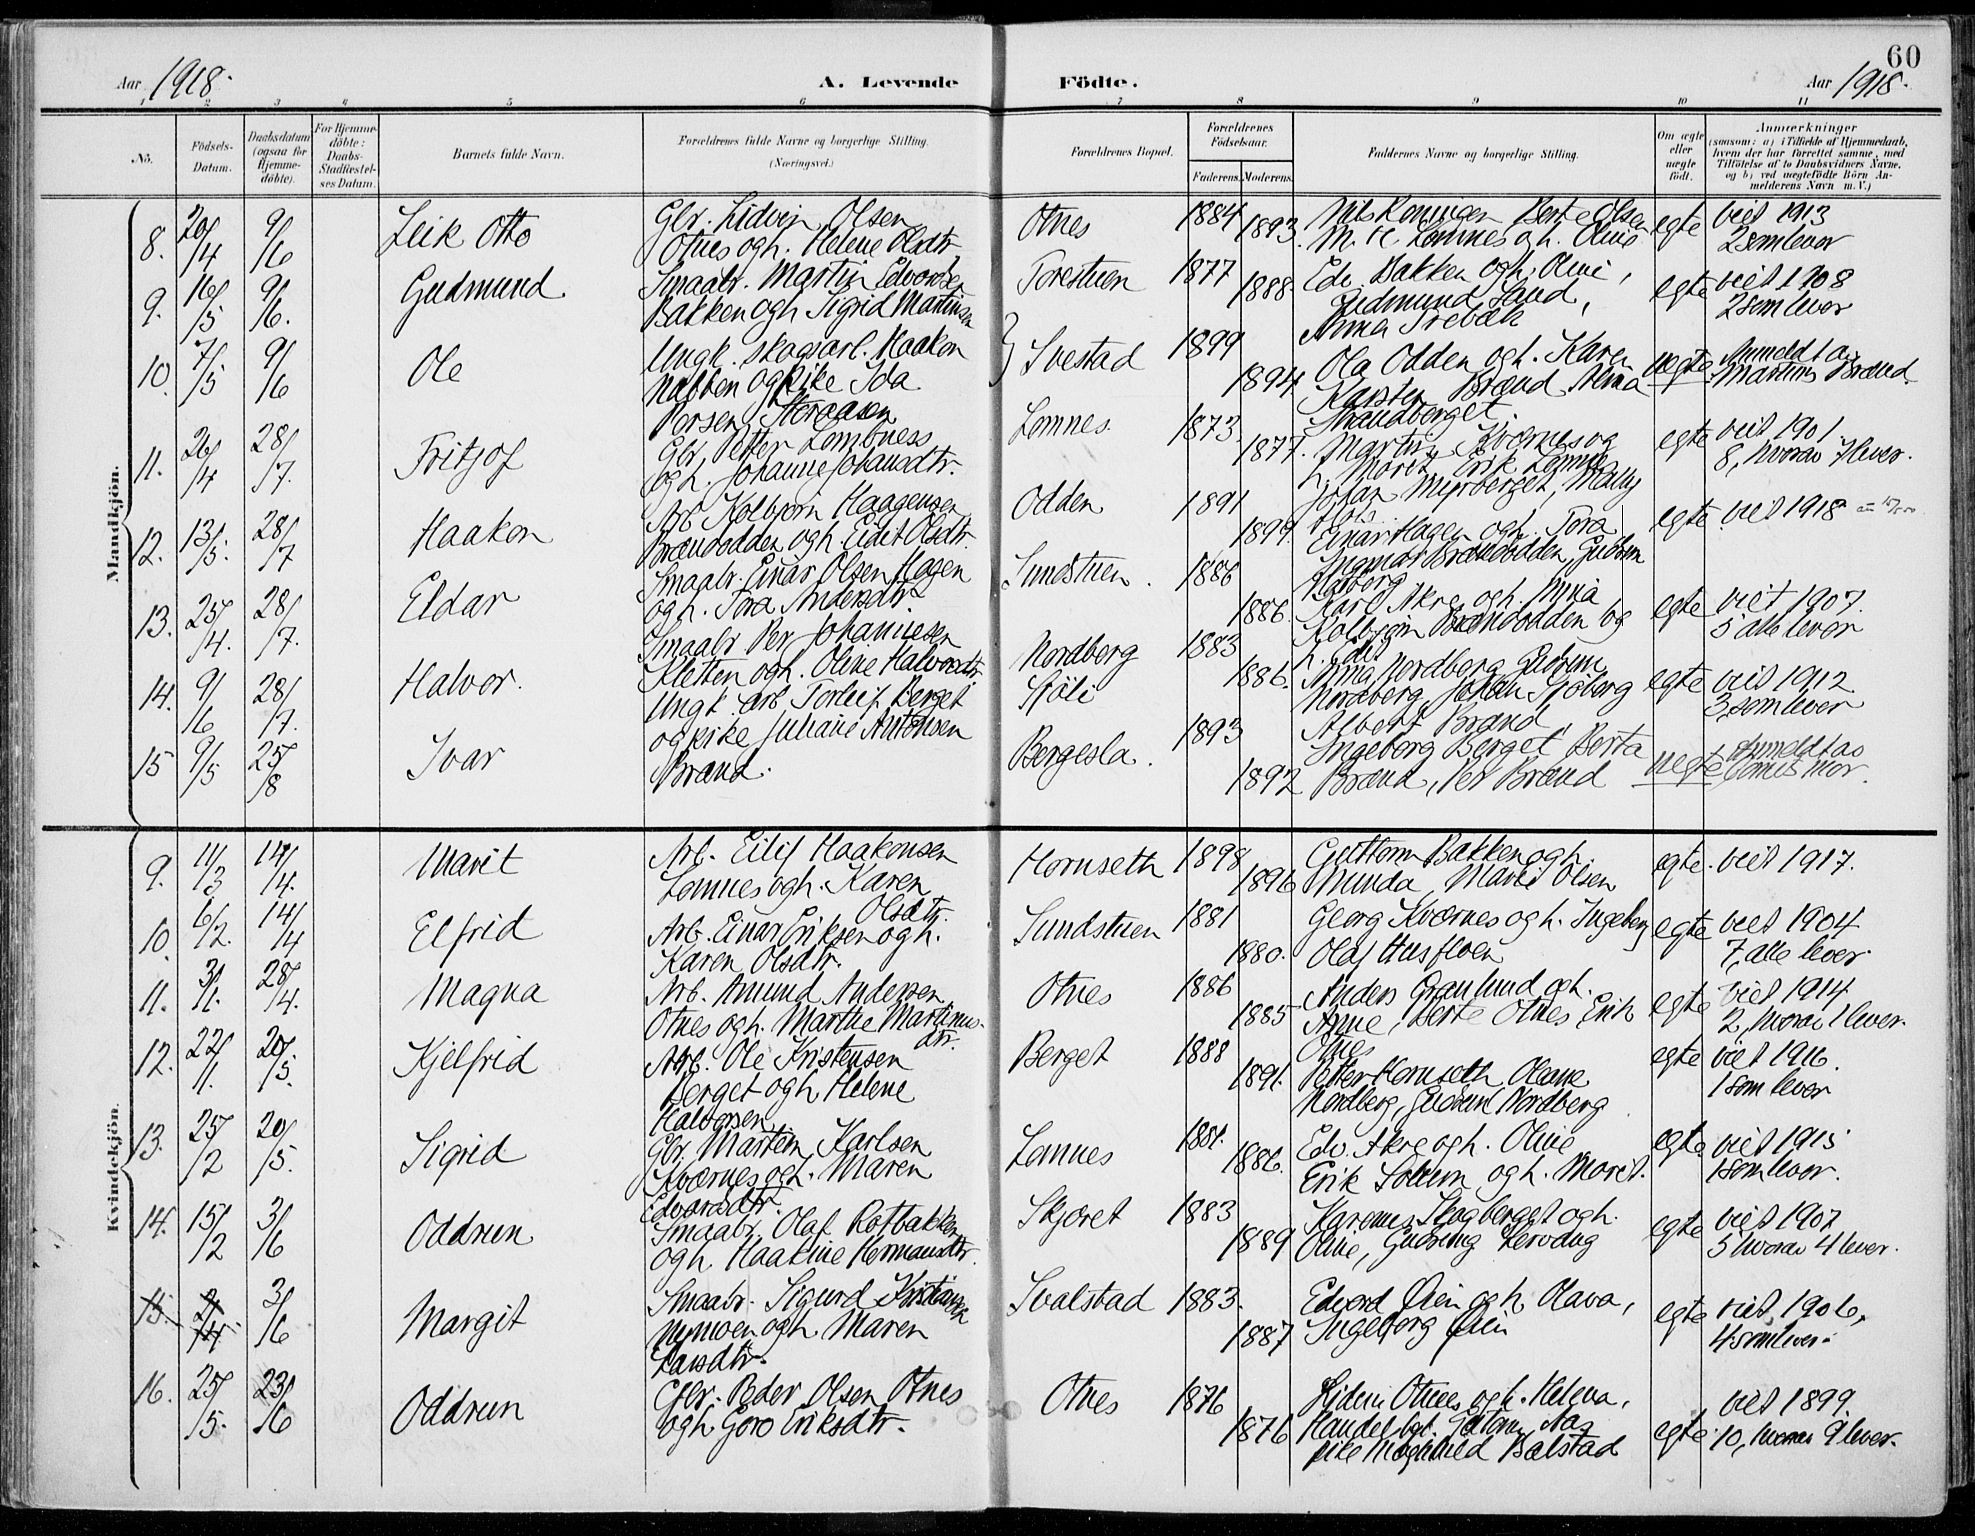 60
Aar 1918.
A. Levende Födte.
Aar 1918.
1 2 3 4 5 6 7 8 9 10 11
No.
Födsels-Datum.
Daabsdatum (ogsaa for Hjemme-döbte).
For Hjemme-döbte: Daabs-Stadfæstel-ses Datum.
Barnets fulde Navn.
Forældrenes fulde Navne og borgerlige Stilling. (Næringsvei.)
Forældrenes Bopæl.
Forældrenes Födselsaar.
Faderens. Moderens.
Faddernes Navne og borgerlige Stilling.
Om ægte eller uægte födt.
Anmærkninger
(saasom: a) i Tilfælde af Hjemmedaab, hvem der har forrettet samme, med Tilföielse af to Daabsvidners Navne, og b) ved uægtefödte Börn An-melderens Navn m. V.)
Mandkjön.
8. 20/4 9/6 Leik Otto
Gbr. Lidvin Olsen
Otnes og h. Helene Olsdtr
Otnes 1884 1893
Berte Olsen
Lomnes og h. Oline
egte viet 1913
2 som lever
9. 16/5 9/6. Gudmund
Smaabr. Martin Edvardsen
Bakken og h Sigrid Martinsen
Torestuen 1877 1888.
Edv. Bakken og h. Oline,
Gudmund Sand,
Anna Trebæk
egte viet 1908
2 som lever
10. 7/5 9/6 Ole
Ungk. skogsarb. Haakon
Nabben og pike Ida
Persen Storaasen
Svestad 1899 1894
Ola Odden og h. Karen
Karsten Brænd Alma
Strandberget.
uegte Anmeldt av
Martins Brænd
11. 26/4 28/7. Fritjof
Gbr. Petter Lombness
og h. Johanne Johansdtr.
Lomnes. 1873. 1877.
Martin Kværnes og
h. Maret, Erik Lomnes
Johan Myrberget, Mally
egte viet 1901
8, hvorav 7 lever.
12. 13/5. 28/7 Haakon
Arb Kolbjørn Haagensen
Brændodden og h. Eidit Olsdtr.
Odden 1891 1899.
Einar Hagen og h. Tora
Ingmar Brændodden, Gudrun
egte viet 1918
13. 25/4. 28/7. Eldar
Smaabr. Einar Olsen Hagen
og h. Tora Andersdtr
Sundstuen. 1886 1886.
Karl Akre og h. Mina
Kolbjørn Brændodden og
h. Edit
egte viet 1907.
5 alle lever
14. 9/6 28/7. Halvor.
Smaabr Per Johannesen
Kletten og h. Oline Halvorsdtr
Nordberg
Sjöli
1883 1886.
Anna Nordberg Gudrun
Nordberg, Johan Sjøberg
egte viet 1912
3 som lever
15 9/5 25/8 Ivar
Ungk. arb Torleif Berget
og pike Juliane Antonsen
Brænd.
Bergesla. 1893 1892
Albert Brænd,
Ingeborg Berget Berta
Brænd, Per Brænd
uegte Anmeldt av
barnets mor.
Kvindekjön.
9. 11/3 14/4. Marit
Arb. Eilif Haakonsen
Lomnes og h. Karen
Olsdtr.
Hornseth 1898 1896
Guttorm Bakken og h
Minda, Marie Olsen
egte. viet 1917.
10 6/2. 14/4 Elfrid
Arb. Einar Eriksen og h.
Karen Olsdtr.
Sundstuen 1881 1880.
Georg Kværnes og h. Ingeborg
Olaf Husfloen
egte viet 1904
7, alle lever
11. 3/11. 28/4. Magna
Arb. Amund Andersen
Otnes og h. Marthe Martinus-
dtr.
Otnes 1886 1885
Anders Granlund og h.
Anne, Berte Otnes Erik
Otnes
egte viet 1914
2, hvorav 1 lever.
12. 22/11. 20/5. Kjelfrid
Arb. Ole Kristensen
Berget og h Helene
Halvorsen
Berget 1888 1891.
Petter Hornseth Oleane
Nordberg, Gudrun Nordberg
egte viet 1916.
1 som lever
13. 25/2 20/5. Sigrid
Gbr. Martin Karlsen
Kværnes og h. Maren
Edvardsdtr.
Lomnes 1881. 1886.
Edv. Akre og h. Oline
Erik Solum og h. Maret.
egte viet 1915
1 som lever.
14. 15/2 3/6 Oddrun
Smaabr. Olaf Rotbakken
og h. Haakine Hermansdtr.
Skjæret 1883 1889
Karenus Skogberget og h.
Oline,
egte viet 1907
5 hvorav 4 lever.
15. 3/6 Margit
Smaabr. Sigurd Kristiansen
Nymoen og h Maren
Larsdtr.
Svalstad 1883. 1887
Edvard Øien og h Olava,
Ingeborg Øien
egte viet, 1906,
4 som lever.
16. 25/5. 23/6 Oddrun
Gbr. Peder Olsen Otnes
og h Goro Eriksdtr.
Otnes 1876 1876
Lidvin Otnes og h. Helena,
pike Magnhild Balstad
egte viet 1899.
10, hvorav 9 lever.